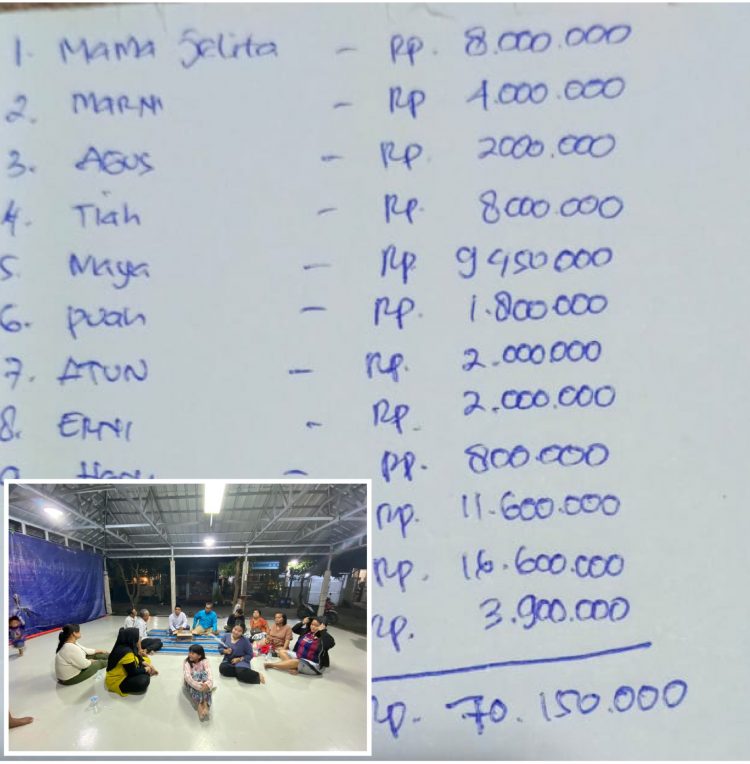 1. MaMa Jelita - Rp. 8.000.000
2. MARNI - Rp 4.000.000
3. AGUS - Rp. 2000.000
4. Tiah - Rp. 8000.000
5. Maya - Rp 9 450 000
6. puah - Rp. 1.800.000
7. ATUN - Rp. 2.000000
8. ERNI - Rp. 2.000.000
9. - Rp. 800.000
Rp. 11.600.000
Rp. 16.600.000
Rp. 3.900.000
Rp. 70.150.000